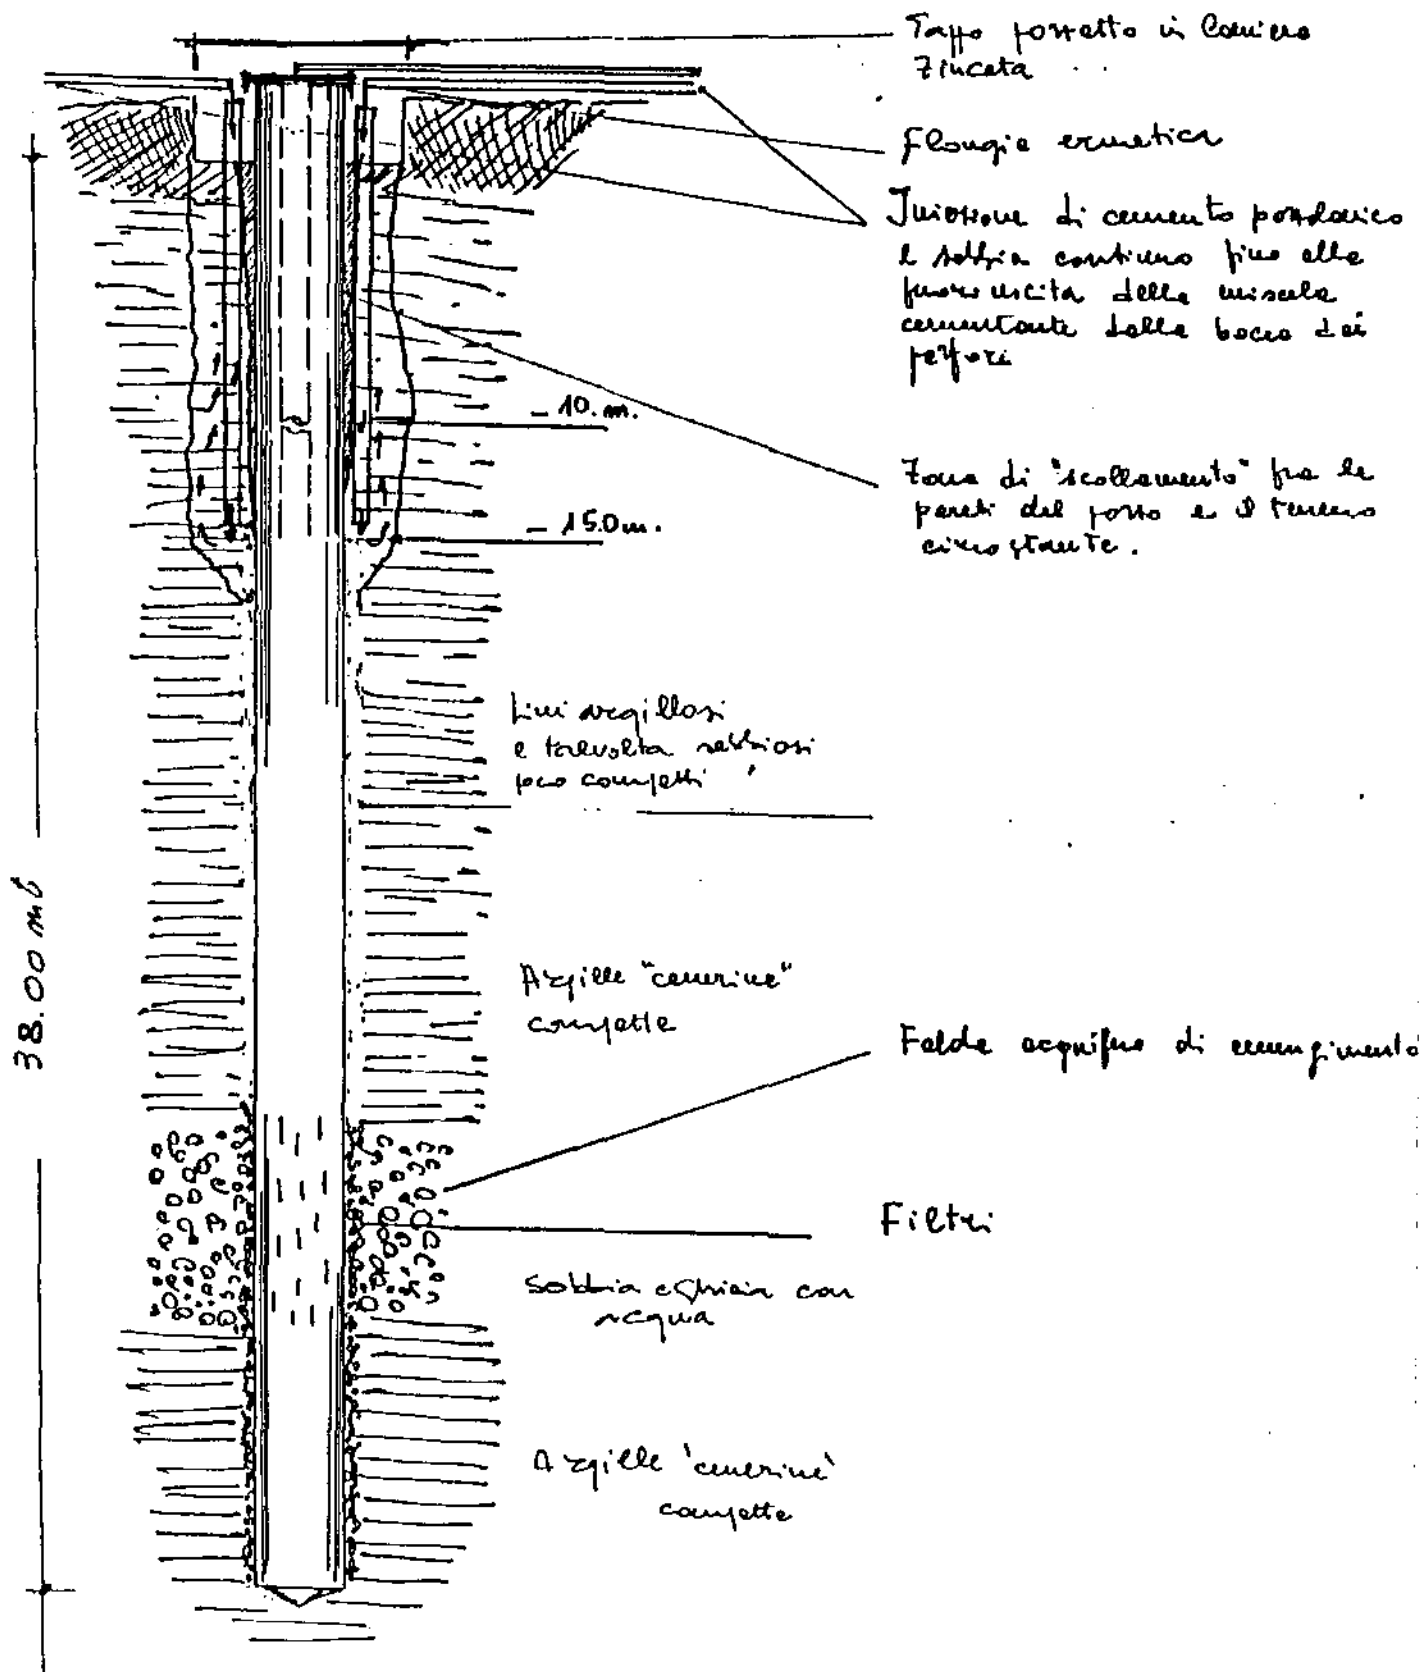 Tappo pozzetto in lamiera
Zincata
Flangia ermetica
Iniezione di cemento pozzolanico
e sabbia continuo fino alla
fuoriuscita della miscela
cementante dalla bocca dei
perfori
- 10. m.
Zona di "scollamento" fra le
pareti del pozzo e il terreno
circostante.
- 15.0 m.
Limi argillosi
e talvolta sabbiosi
poco compatti
38.00 ml
Argille "cenerine"
compatte
Falda acquifera di emungimento
Filtri
Sabbia e ghiaia con
acqua
Argille "cenerine"
compatte